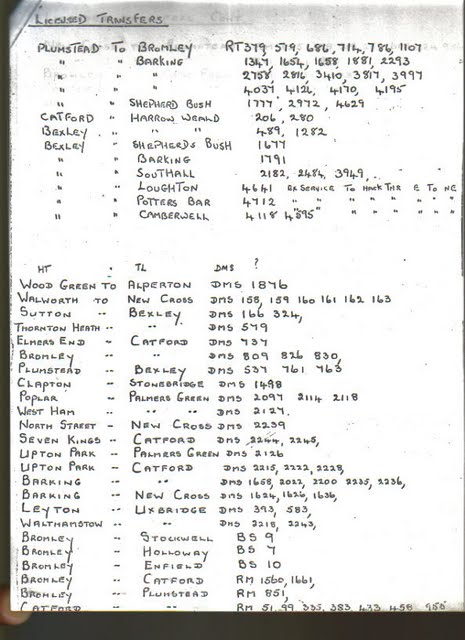 LICENSED TRANSFERS
PLUMSTEAD TO BROMLEY RT379, 519, 686, 714, 786, 1107
" " BARKING 1347, 1654, 1658, 1881, 2293
" " " 2758, 2816, 3410, 3817, 3997
" " " 4037, 4126, 4170, 4195
" " SHEPHERD BUSH 1777, 2972, 4629
CATFORD " HARROW WEALD 206, 280
BEXLEY " " " 489, 1282
BEXLEY " SHEPHERDS BUSH 1677
" " BARKING 1791
" " SOUTHALL 2182, 2484, 3949,
" " LOUGHTON 4641 EX SERVICE TO HACK THR E TO NE
" " POTTERS BAR 4712 " " " " " " "
" " CAMBERWELL 4118 4"595" " " " " " "
HT " TL DMS ?
WOOD GREEN TO ALPERTON DMS 1876
WALWORTH TO NEW CROSS DMS 158, 159 160 161 162 163
SUTTON -- BEXLEY DMS 166 324,
THORNTON HEATH -- -- DMS 579
ELMERS END -- CATFORD DMS 737
BROMLEY -- -- DMS 809 826 830,
PLUMSTEAD -- BEXLEY DMS 537 761 763
CLAPTON -- STONEBRIDGE DMS 1498
POPLAR -- PALMERS GREEN DMS 2097 2114 2118
WEST HAM -- -- -- DMS 2127.
NORTH STREET - NEW CROSS DMS 2239
SEVEN KINGS -- CATFORD DMS 2244, 2245,
UPTON PARK -- PALMERS GREEN DMS 2126
UPTON PARK -- CATFORD DMS 2215, 2222, 2228,
BARKING -- -- DMS 1658, 2022, 2200 2235, 2236,
BARKING -- NEW CROSS DMS 1624, 1626, 1636,
LEYTON -- UXBRIDGE DMS 393, 583,
WALTHAMSTOW -- -- DMS 2218, 2243,
BROMLEY -- STOCKWELL BS 9
BROMLEY -- HOLLOWAY BS 7
BROMLEY -- ENFIELD BS 10
BROMLEY -- CATFORD RM 1560, 1661,
BROMLEY -- PLUMSTEAD RM 851,
CATFORD -- -- RM 51, 99 335, 383, 433 458